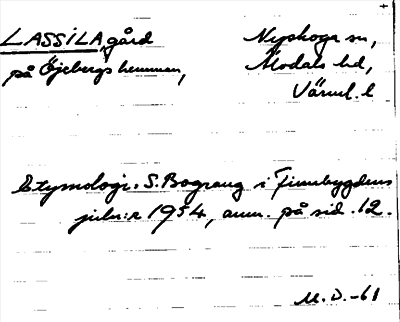 LASSILA, gård
på Öjebergs hemman,
Nyskoga sn,
Älvdals hd,
Värml. l
Etymologi. S. Bograng i Finnbygdens
julnr 1954, anm. på sid. 12.
M. D. -61